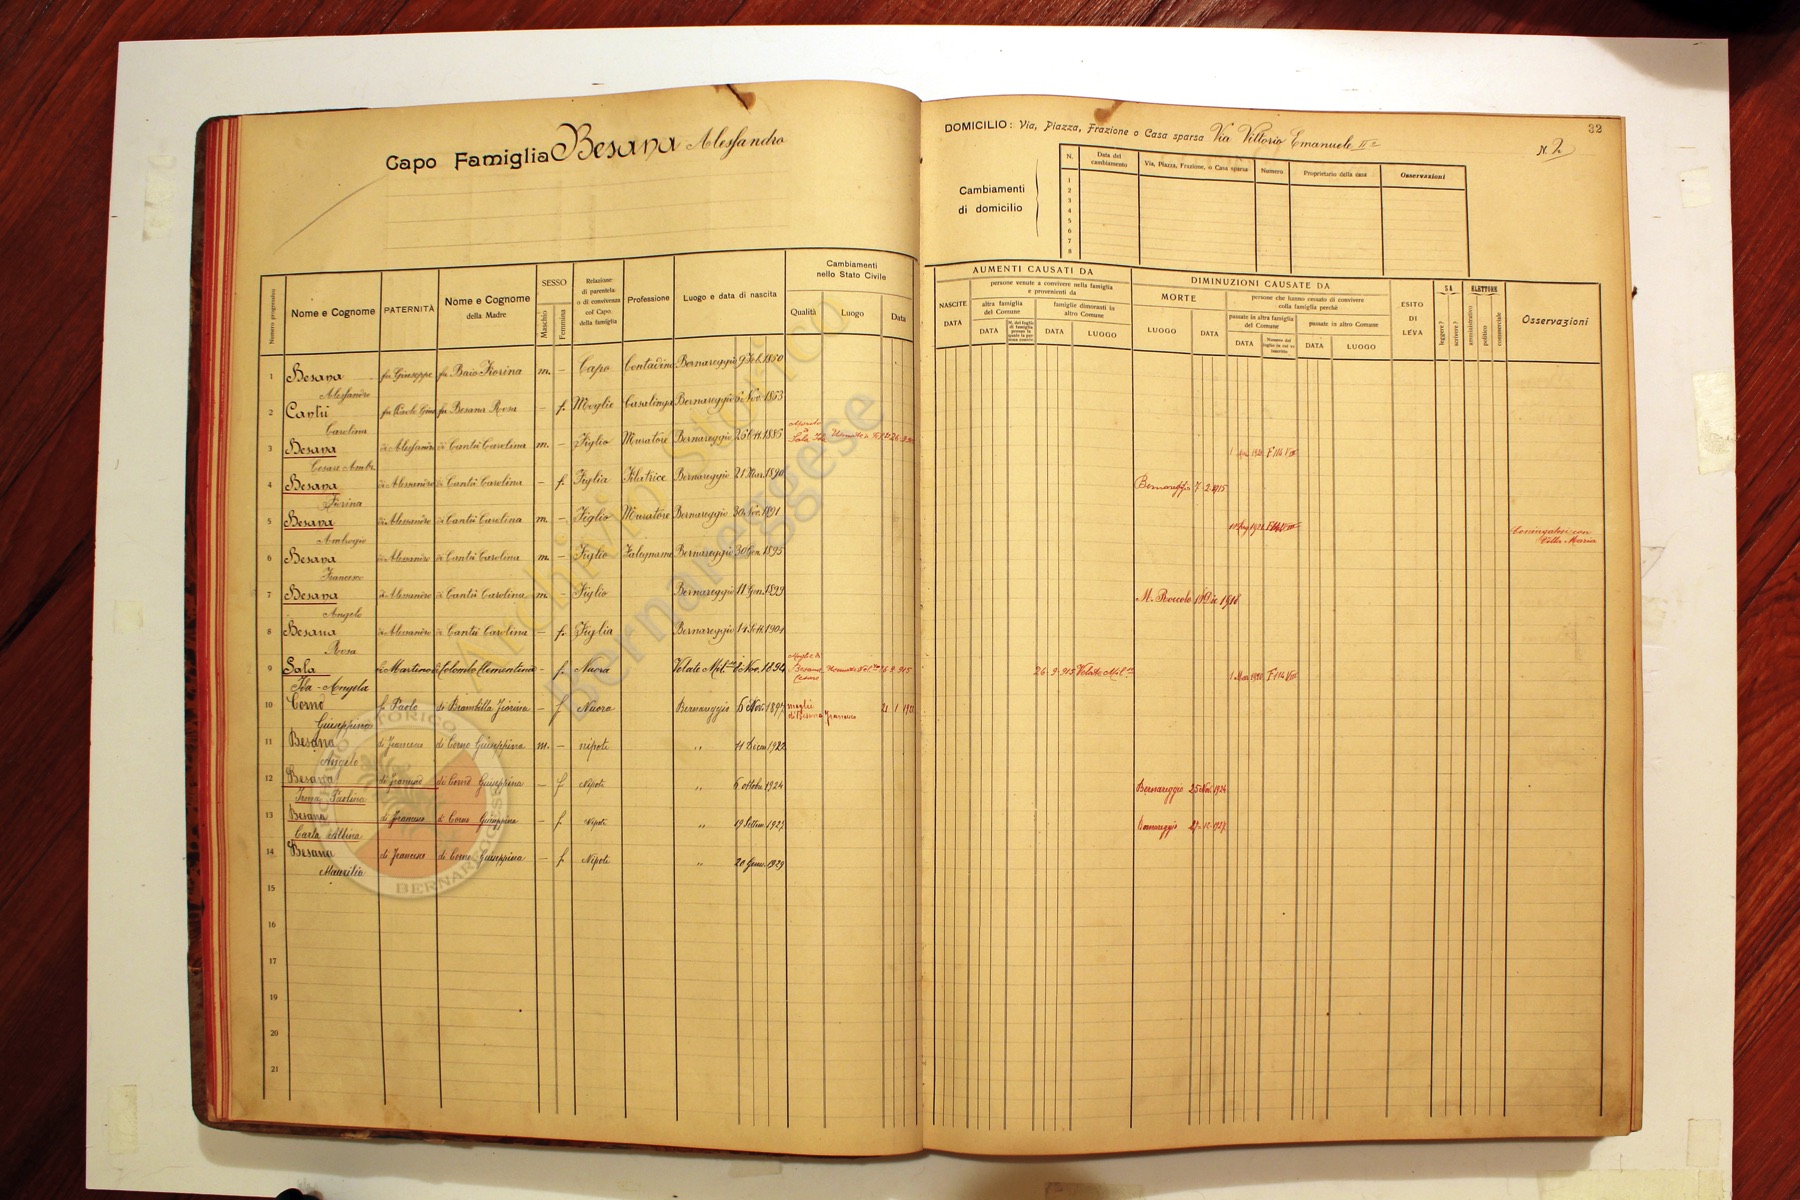 Capo Famiglia Besana Alessandro
DOMICILIO: Via, Piazza, Frazione o Casa sparsa Via Vittorio Emanuele II° N. 2
32
Cambiamenti di domicilio
N. Data del cambiamento Via, Piazza, Frazione, o Casa sparsa Numero Proprietario della casa Osservazioni
1
2
3
4
5
6
7
8
Numero progressivo Nome e Cognome PATERNITÀ Nome e Cognome della Madre SESSO Maschio Femmina Relazione di parentela o di convivenza col Capo della famiglia Professione Luogo e data di nascita Cambiamenti nello Stato Civile Qualità Luogo Data
AUMENTI CAUSATI DA
NASCITE DATA
persone venute a convivere nella famiglia e provenienti da
altra famiglia del Comune DATA
famiglie dimoranti in altro Comune DATA LUOGO
DIMINUZIONI CAUSATE DA
MORTE LUOGO DATA
persone che hanno cessato di convivere colla famiglia perchè
passate in altra famiglia del Comune DATA
passate in altro Comune DATA LUOGO
ESITO DI LEVA
SA leggere? scrivere?
ELETTORE amministrativo politico commerciale
Osservazioni
1 Besana Alessandro fu Giuseppe fu Baio Fiorina m. – Capo Contadino Bernareggio 9 Feb. 1850
2 Cantù Carolina fu Besana Rosa – f. Moglie Casalinga Bernareggio 6 Nov. 1853
3 Besana Cesare Ambr. di Alessandro di Cantù Carolina m. – Figlio Muratore Bernareggio 25 Ott. 1885 Sala Ida 26-9-915 F 114 VIII
4 Besana Fiorina di Alessandro di Cantù Carolina – f. Figlia Filatrice Bernareggio 21 Mar. 1890 Bernareggio 7 2-1915
5 Besana Ambrogio di Alessandro di Cantù Carolina m. – Figlio Muratore Bernareggio 30 Nov. 1891 Coniugatosi con Villa Maria
6 Besana Francesco di Alessandro di Cantù Carolina m. – Figlio Falegname Bernareggio 30 Gen. 1895
7 Besana Angelo di Alessandro di Cantù Carolina m. – Figlio Bernareggio 11 Gen. 1899 M. Roccolo 19 Dic 1918
8 Besana Rosa di Alessandro di Cantù Carolina – f. Figlia Bernareggio 14 Sett. 1904
9 Sala Ida - Angela di Martino di Colombo Clementina – f. Nuora Velate Mil. Nov. 1894 Moglie di Besana Cesare 26-9-915 26-9-915 Velate Mil. 1 Mar 1920 F 114 VIII
10 Corno Giuseppina fu Paolo di Brambilla Fiorina – f Nuora Bernareggio 6 1897 moglie di Besana Francesco 21 1
11 Besana Angelo di Francesco di Corno Giuseppina m. – nipote " 11 Dicem 1922
12 Besana Irma Paolina di Francesco di Corno Giuseppina – f Nipote " 6 ottobre 1924 Bernareggio 25 Nov. 1924
13 Besana Carla Albina di Francesco di Corno Giuseppina – f. Nipote " 19 Settem. 1927 Bernareggio 1927
14 Besana Maurilia di Francesco di Corno Giuseppina – f. Nipote " 20 Genn. 1929
15
16
17
18
19
20
21
Archivio Storico
Bernareggese
ARCHIVIO STORICO BERNAREGGESE